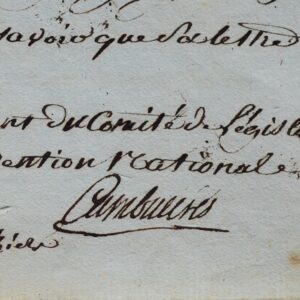 savoir que sa lettre
nt du Comité de Législ
vention Nationale
Cambacérés